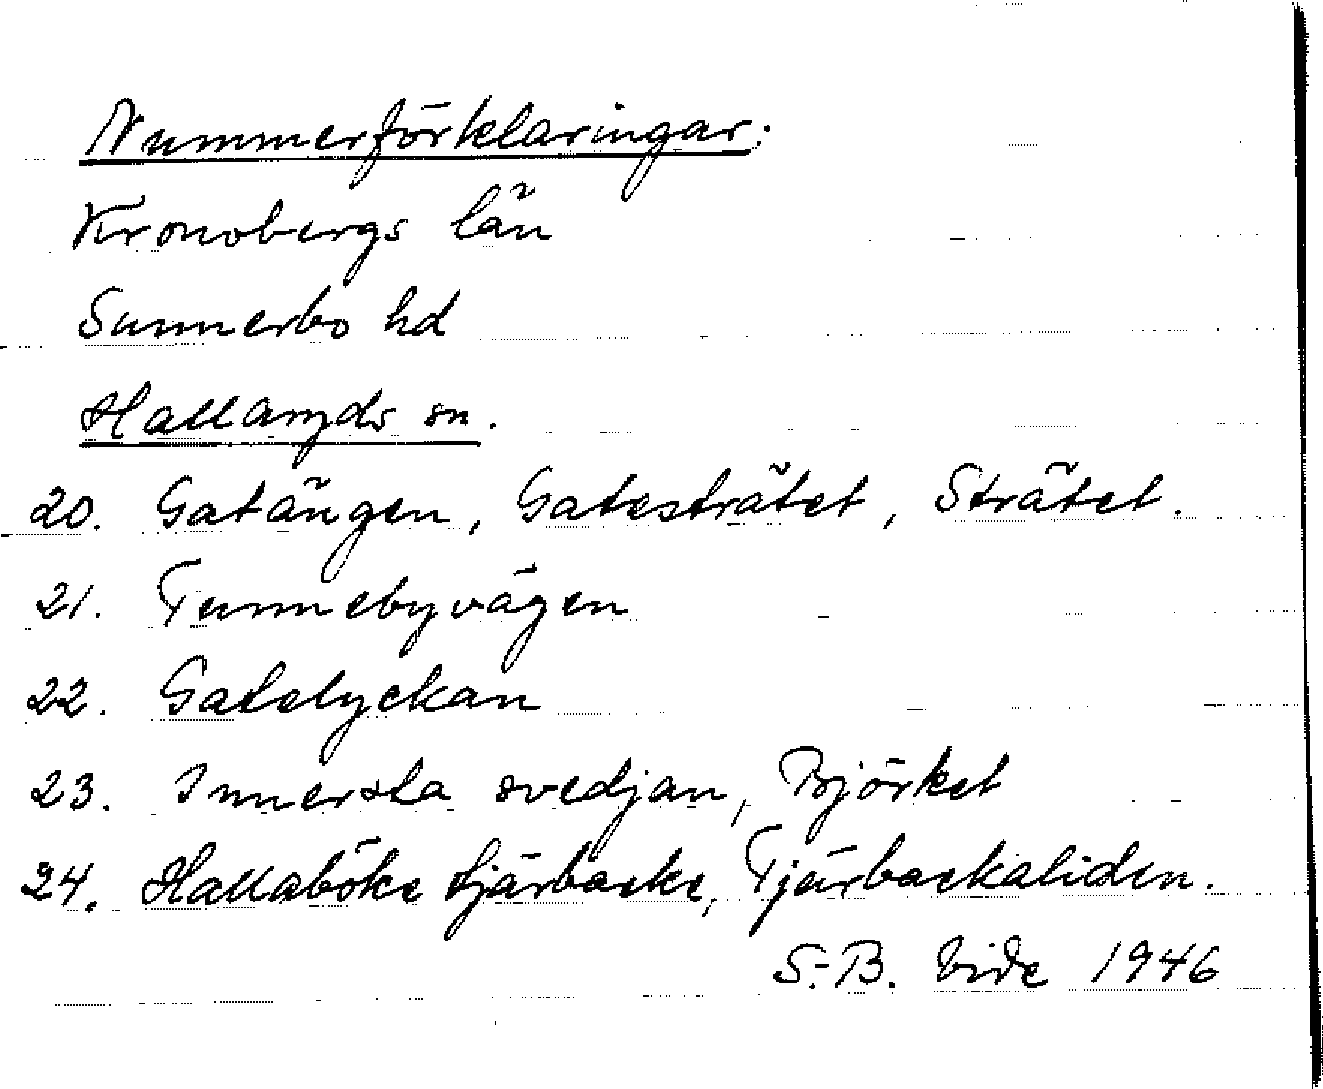 Nummerförklaringar:
Kronobergs län
Sunnerbo hd
Hallaryds sn.
20. Gatängen, Gatesträtet, Strätet.
21. Tunnebyvägen
22. Gatelyckan
23. Innersta svedjan, Björket
24. Hallaböke tjärbacke, Tjärbackaliden.
S.-B. Vide 1946